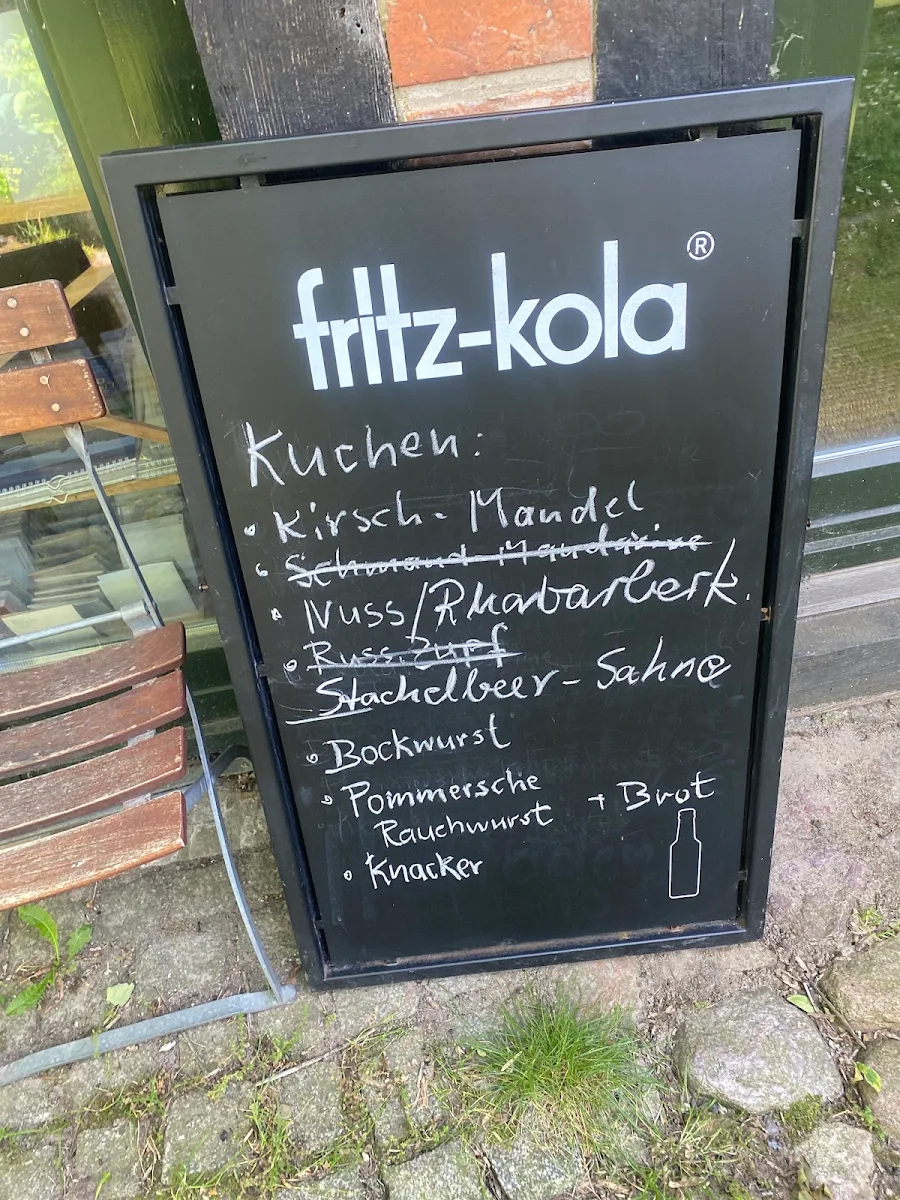 fritz-kola®
Kuchen:
• Kirsch-Mandel
• Schmand-Mandarine
• Nuss/Rhabarberk.
• Russ. Zupf
Stachelbeer-Sahne
• Bockwurst
• Pommersche
Rauchwurst + Brot
• Knacker